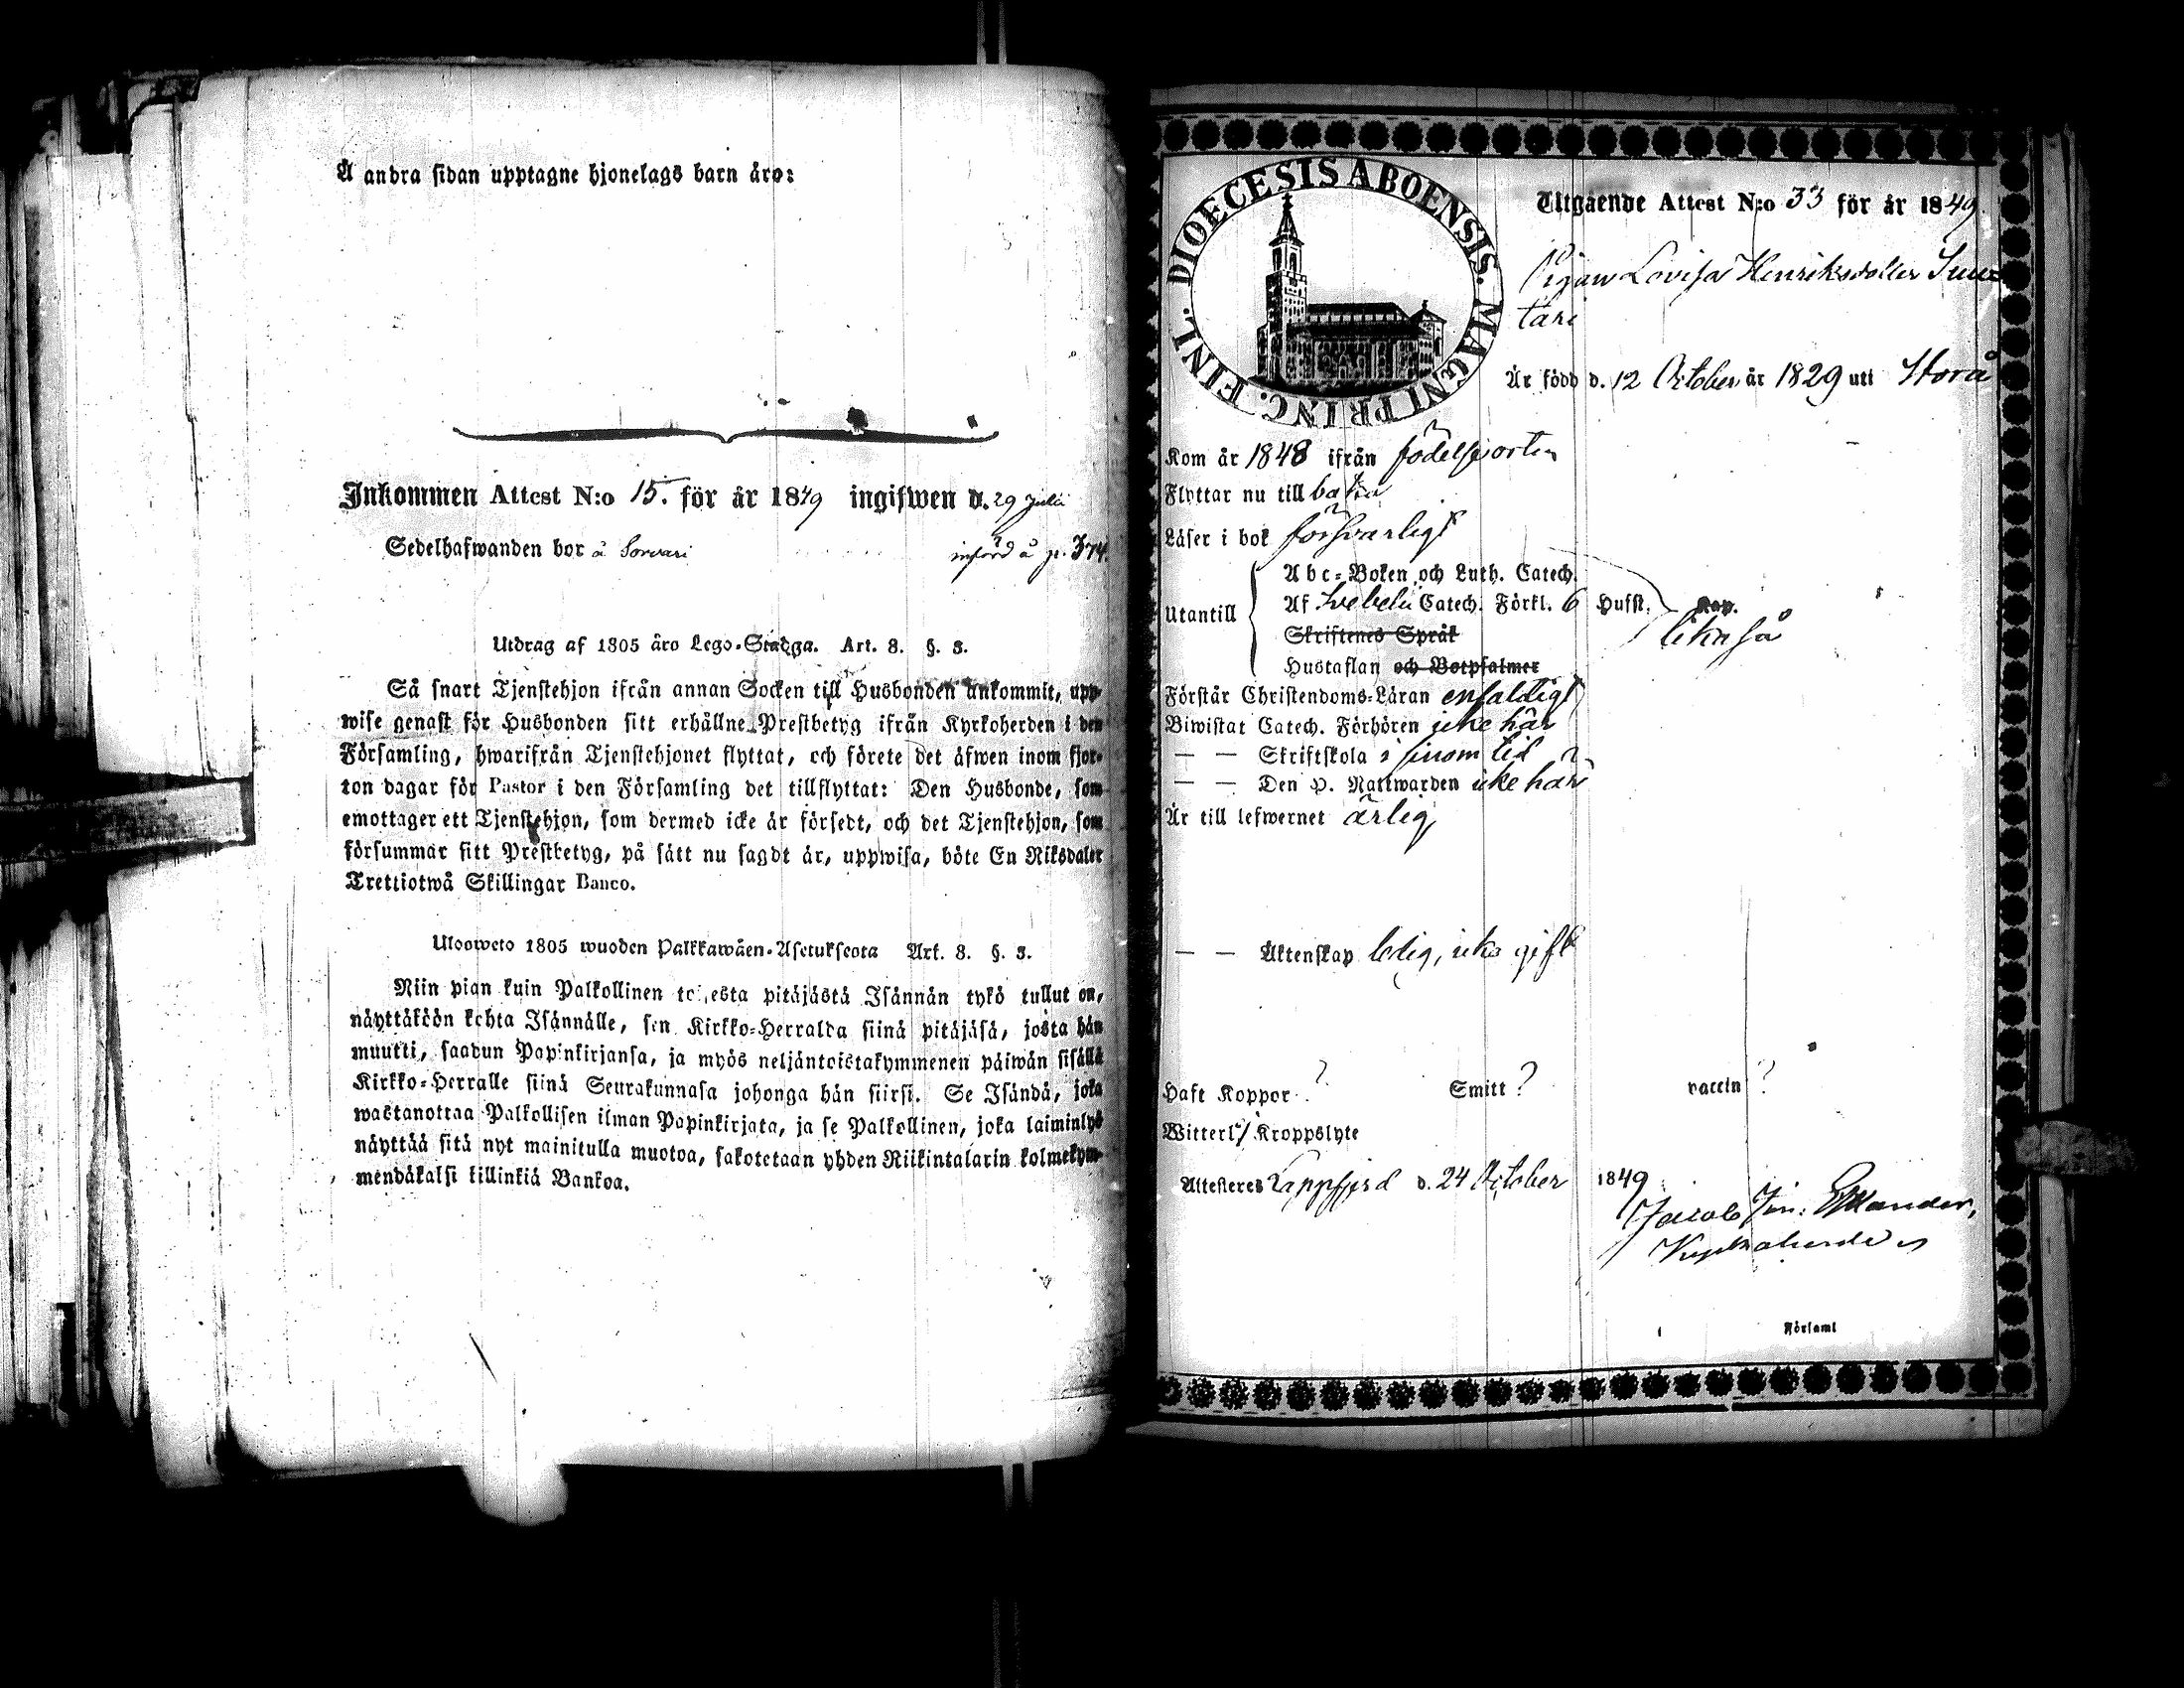 Å andra sidan upptagne hjonelags barn äro:
Inkommen Attest N:o 15. för år 1849 ingifwen d. 29 Julii
Sedelhafwanden bor å Sorvari införd å p. 374.
Utdrag af 1805 års Lego-Stadga. Art. 8. §. 3.
Så snart Tjenstehjon ifrån annan Socken till Husbonden ankommit, upp-
wise genast för Husbonden sitt erhållne Prestbetyg ifrån Kyrkoherden i den
Församling, hwarifrån Tjenstehjonet flyttat, och förete det äfwen inom fjor-
ton dagar för Pastor i den Församling det tillflyttat: Den Husbonde, som
emottager ett Tjenstehjon, som dermed icke är försedt, och det Tjenstehjon, som
försummar sitt Prestbetyg, på sätt nu sagdt är, uppwisa, böte En Riksdaler
Trettiotwå Skillingar Banco.
Ulosweto 1805 wuoden Palkkawäen-Asetuksesta Art. 8. §. 3.
Niin pian kuin Palkollinen toisesta pitäjästä Isännän tykö tullut on,
näyttäköön kohta Isännälle, sen Kirkko-Herralda siinä pitäjäsä, josta hän
muutti, saadun Papinkirjansa, ja myös neljäntoistakymmenen päiwän sisällä
Kirkko-Herralle siinä Seurakunnasa johonga hän siirsi. Se Isändä, joka
wastanottaa Palkollisen ilman Papinkirjata, ja se Palkollinen, joka laiminlyö
näyttää sitä nyt mainitulla muotoa, sakotetaan yhden Riikintalarin kolmekym-
mendäkaksi killinkiä Bankoa.
DIOECESIS ABOENSIS. MAGNI PRINC. FINL.
Utgående Attest N:o 33 för år 1849
Pigan Lovisa Henriksdotter
tari
Är född d. 12 October år 1829 uti Storå
Kom år 1848 ifrån födelseorten
Flyttar nu till baka
Läser i bok försvarligt
Utantill
Abc-Boken och Luth. Catech.
Af Svebelii Catech. Förkl. 6 Hufst. Kap.
likaså
Skriftenes Språk
Hustaflan och Botpsalmer
Förstår Christendoms-Läran enfaldigt
Biwistat Catech. Förhören icke här
— — Skriftskola i sinom tid
— — Den H. Nattwarden icke här
Är till lefwernet ärlig
— — Äktenskap ledig, icke gift
Haft Koppor ? Smitt ? vaccin ?
Witterl. Kroppslyte
Attesteres Lappfjerd d. 24 October 1849
Jacob
Kyrkoherde
Församl